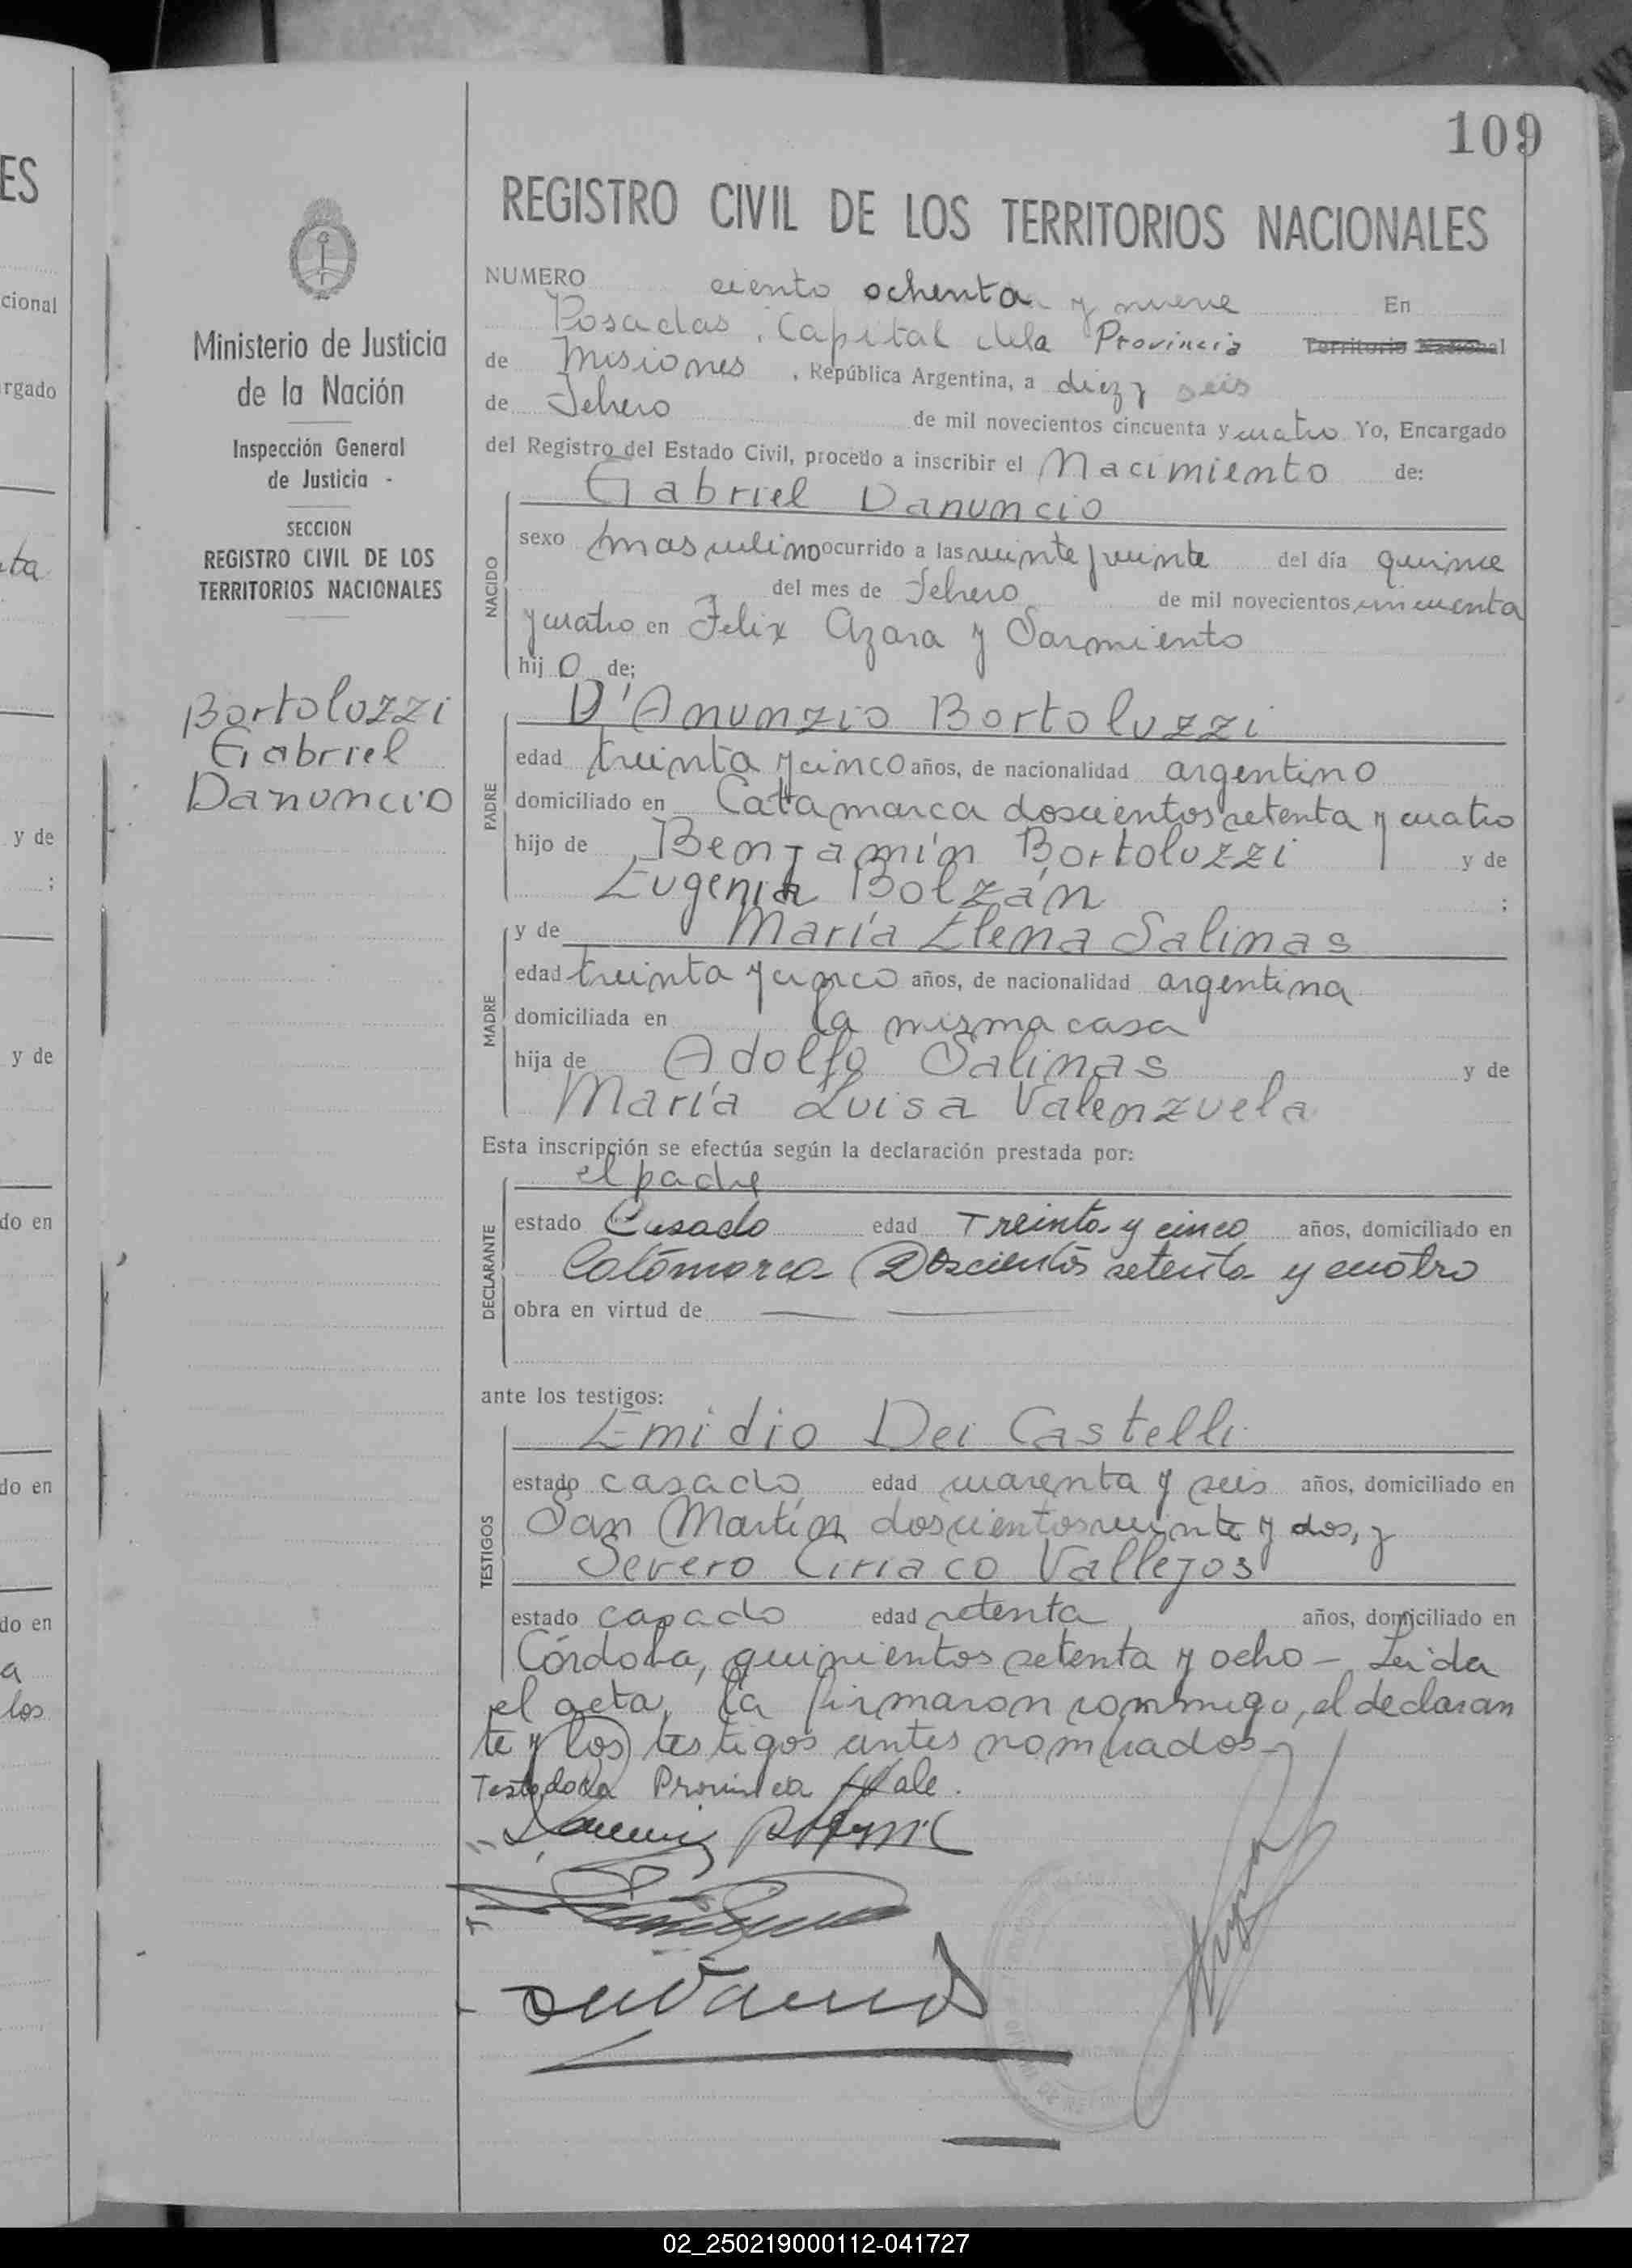 109
REGISTRO CIVIL DE LOS TERRITORIOS NACIONALES
Ministerio de Justicia
de la Nación
Inspección General
de Justicia -
SECCION
REGISTRO CIVIL DE LOS
TERRITORIOS NACIONALES
Bortoluzzi
Gabriel
Danuncio
NUMERO ciento ochenta y nueve En
Posadas, Capital dela Provincia Territorio Nacional
de Misiones, República Argentina, a diez y seis
de Febrero de mil novecientos cincuenta y cuatro Yo, Encargado
del Registro del Estado Civil, procedo a inscribir el Nacimiento de:
Gabriel Danuncio
NACIDO
sexo masculino ocurrido a las veinte y veinte del día quince
del mes de Febrero de mil novecientos cincuenta
y cuatro en Felix Azara y Sarmiento
hij o de;
D'Anunzio Bortoluzzi
PADRE
edad treinta y cinco años, de nacionalidad argentino
domiciliado en Catamarca doscientos setenta y cuatro
hijo de Benjamín Bortoluzzi y de
Eugenia Bolzán ;
y de María Elena Salinas
MADRE
edad treinta y cinco años, de nacionalidad argentina
domiciliada en la misma casa
hija de Adolfo Salinas y de
María Luisa Valenzuela
Esta inscripción se efectúa según la declaración prestada por:
el padre
DECLARANTE
estado Casado edad Treinta y cinco años, domiciliado en
Catamarca Doscientos setenta y cuatro
obra en virtud de
ante los testigos:
Emidio Dei Castelli
TESTIGOS
estado casado edad cuarenta y seis años, domiciliado en
San Martín doscientos veinte y dos, y
Severo Ciriaco Vallejos
estado casado edad setenta años, domiciliado en
Córdoba, quinientos setenta y ocho - Leida
el acta, la firmaron conmigo, el declaran
te y los testigos antes nombrados-
Provincia Vale.
ES
cional
rgado
ta
y de
;
y de
do en
do en
do en
a
los
02_250219000112-041727